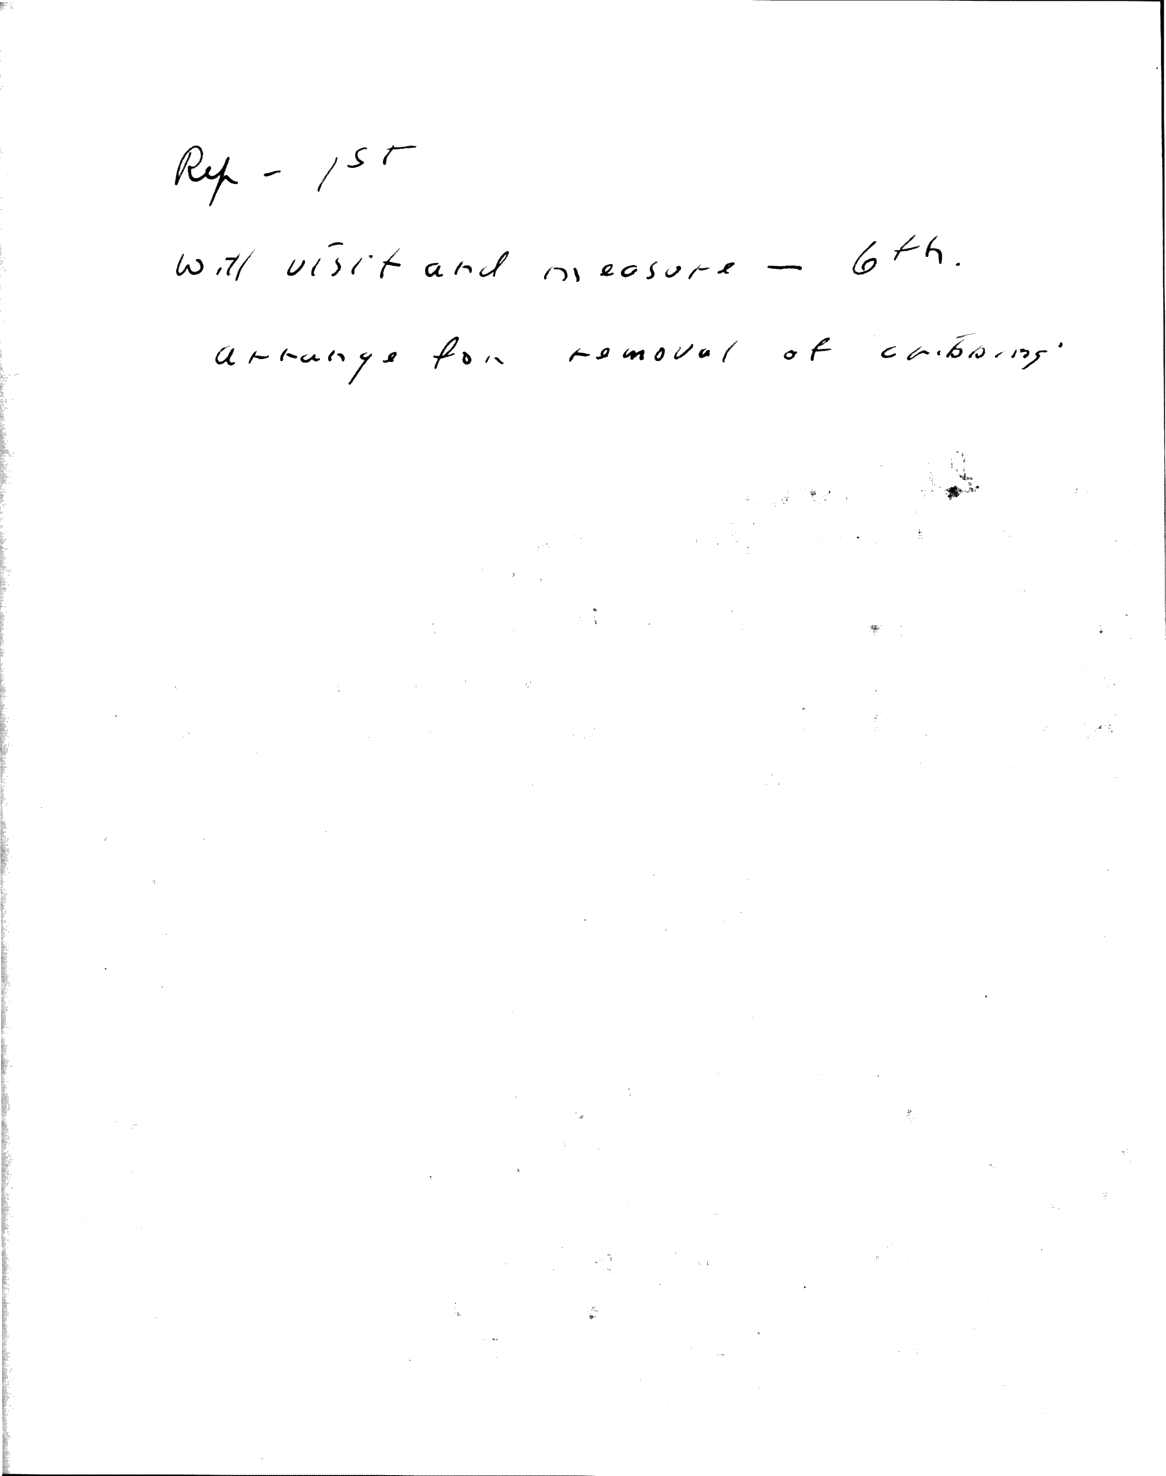 Rep - 1st
will visit and measure - 6th.
arrange for removal of cribbing.